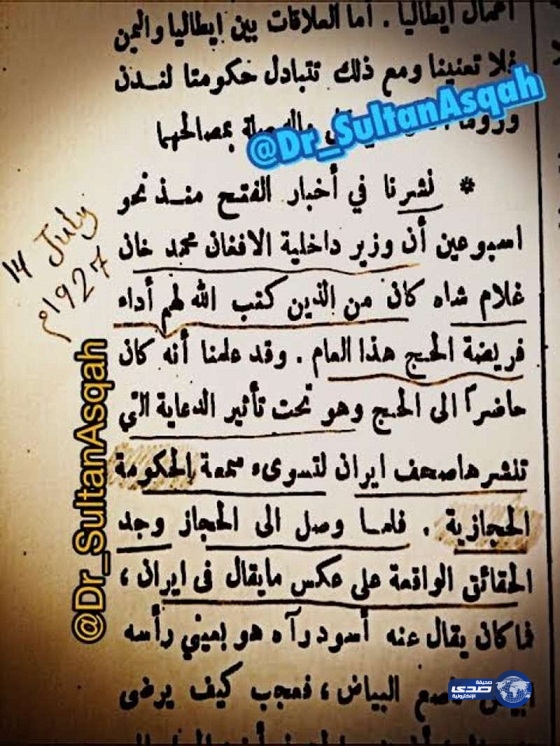 أعمال إيطاليا . أما العلاقات بين إيطاليا واليمن
فلا تعنينا ومع ذلك تتبادل حكومتا لندن
بمصالحها
@Dr_SultanAsqah
* نشرنا في أخبار الفتح منذ نحو
اسبوعين أن وزير داخلية الافغان محمد خان
غلام شاه كان من الذين كتب الله لهم أداء
فريضة الحج هذا العام . وقد علمنا أنه كان
حاضراً الى الحج وهو تحت تأثير الدعاية التي
تنشرها صحف ايران لتسوىء سمعة الحكومة
الحجازية . فلما وصل الى الحجاز وجد
الحقائق الواقعة على عكس مايقال فى ايران ،
فما كان يقال عنه أسود رآه هو بعيني رأسه
أبيض ناصع البياض ، فعجب كيف يرضى
14 July
1927م
@Dr_SultanAsqah
صحيفة
صدى
الإلكترونية